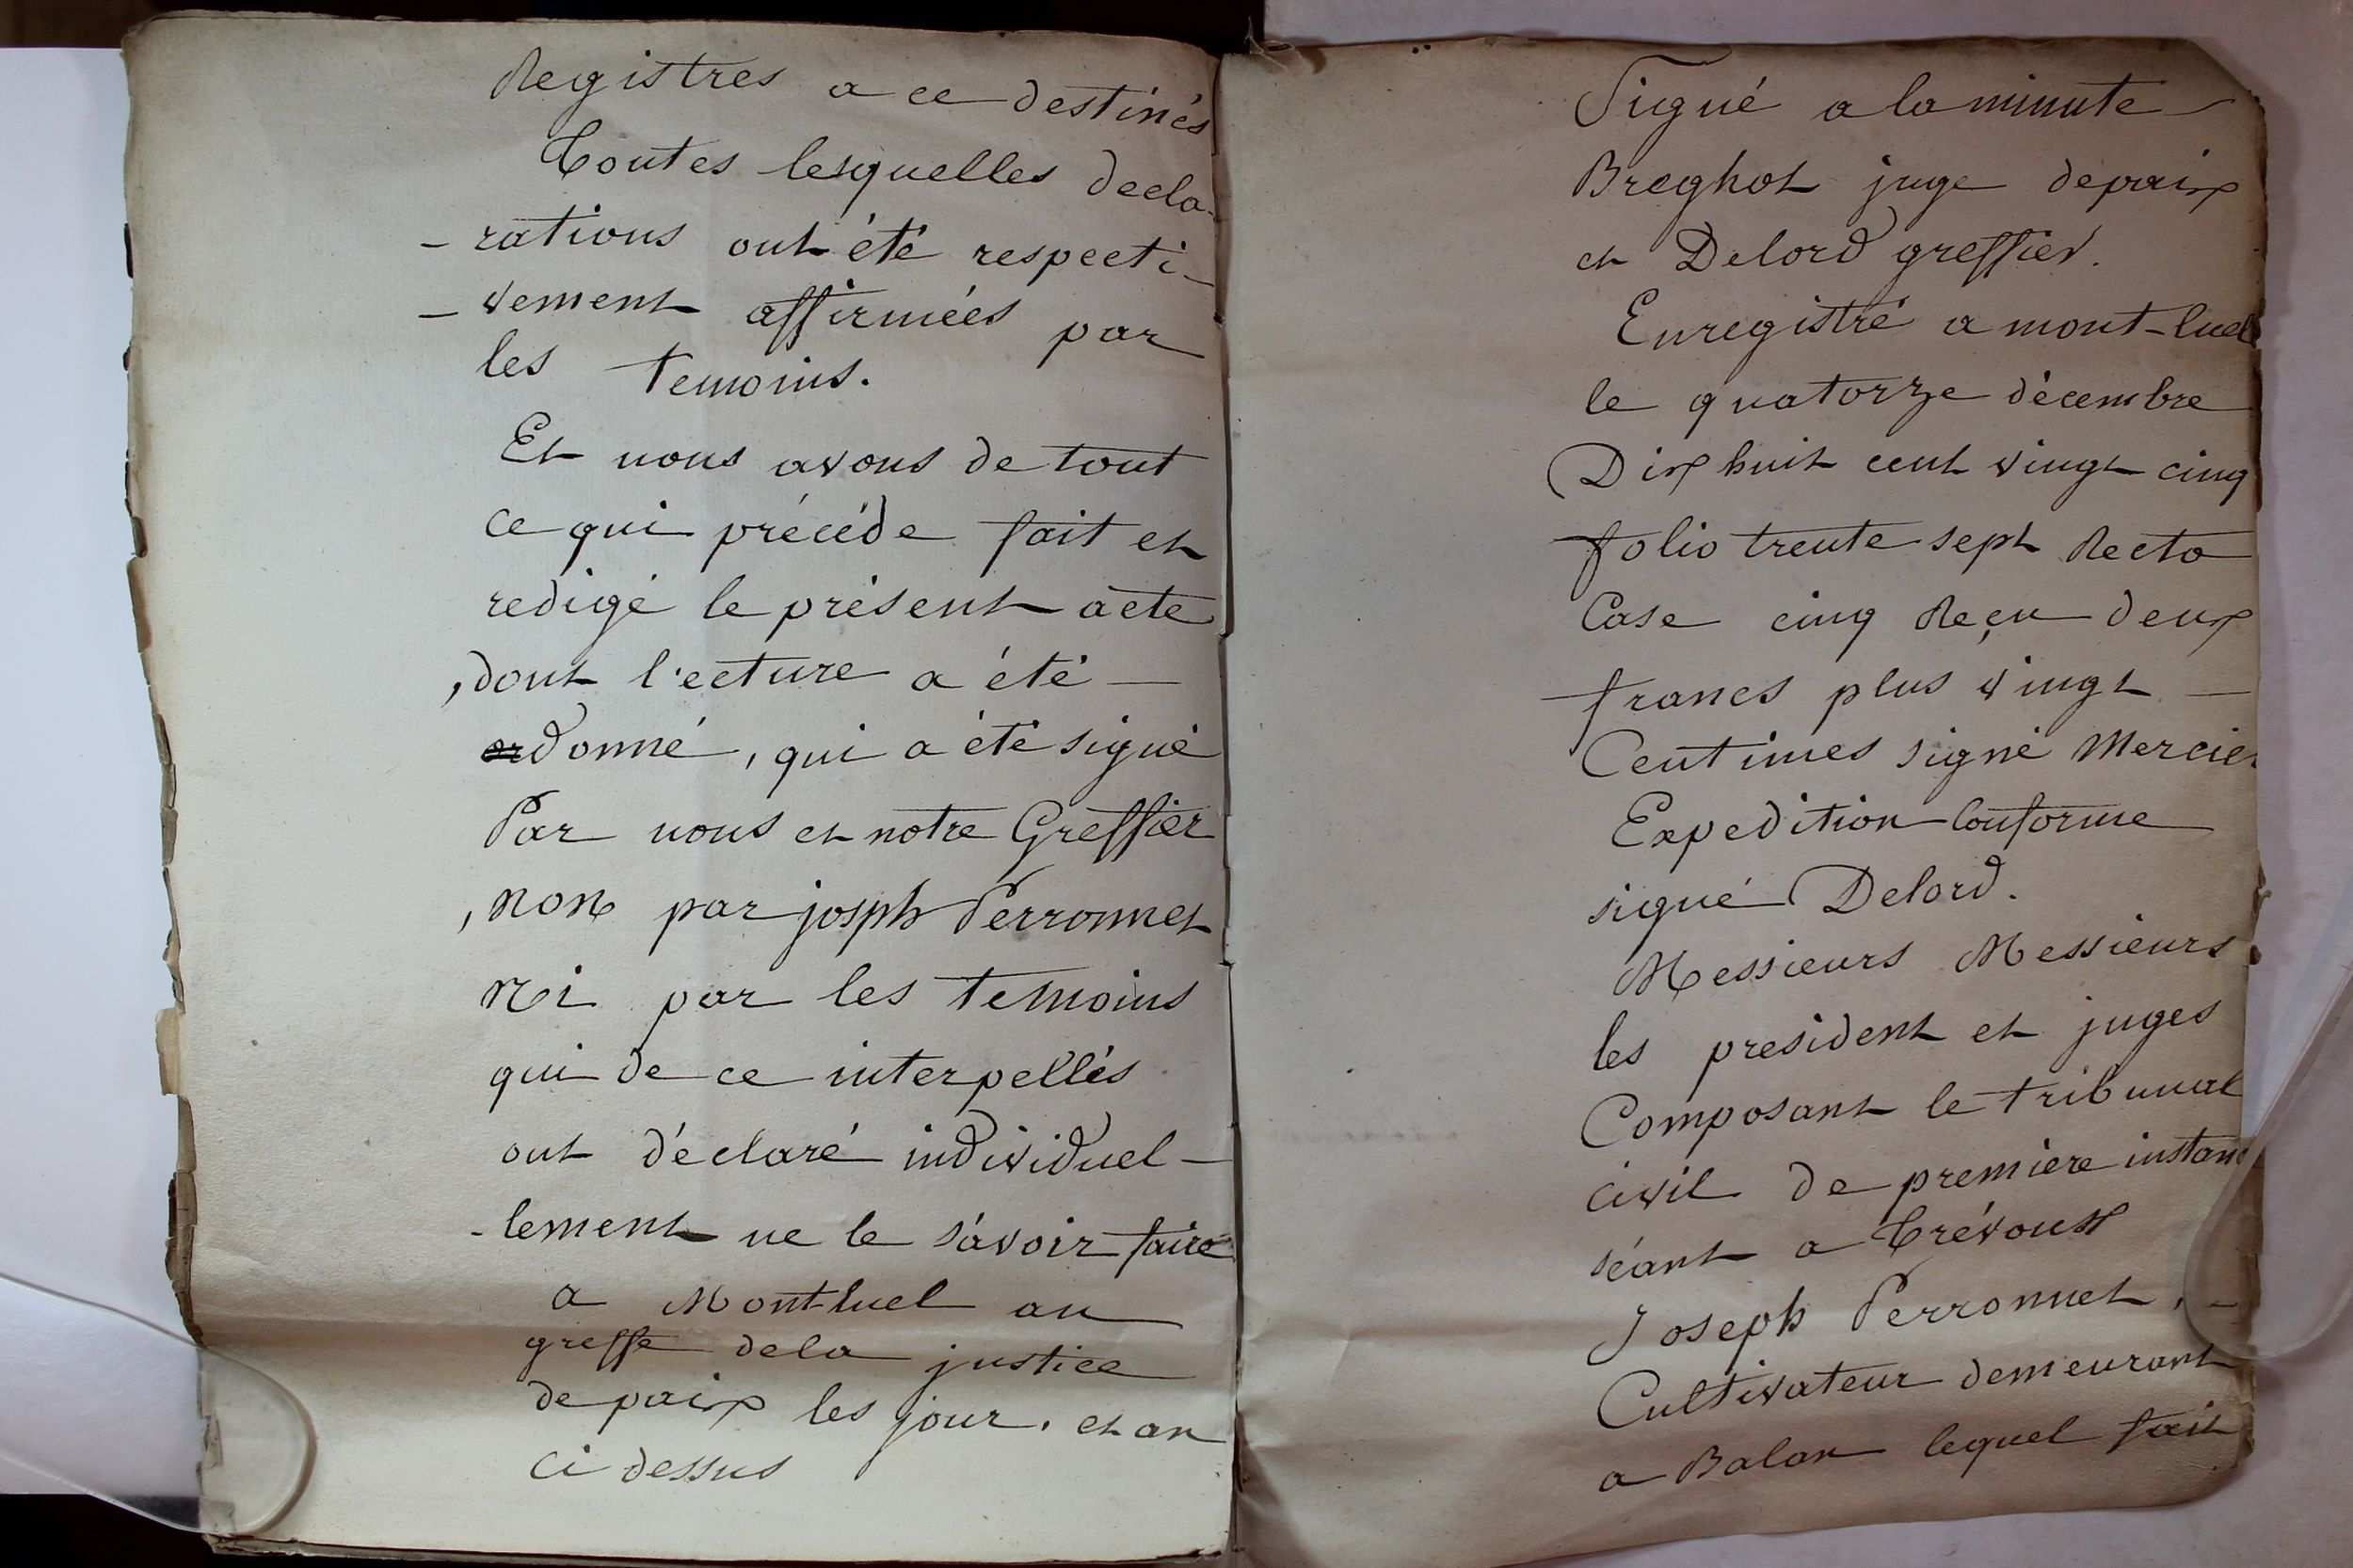 Registres a ce destinés
Toutes lesquelles decla-
- rations ont été respecti-
- vement affirmées par
les temoins.
Et nous avons de tout
ce qui précéde fait et
redigé le présent acte
, dont l'ecture a été —
ordonné, qui a été signé
Par nous et notre Greffier
, non par josph Perronnet
ni par les temoins
qui de ce interpellés
ont déclaré individuel -
- lement ne le sávoir faire
a Montluel au
greffe dela justice
depaix les jour. et an
ci dessus
Signé a la minute
Breghot juge depaix
et Delord greffier.
Enregistré a mont-luel
le quatorze décembre
Dix huit cent vingt cinq
folio trente sept Recto
Case cinq Reçu deux
francs plus vingt —
Centimes signé Mercier
Expedition Conforme
signé Delord.
Messieurs Messieurs
les president et juges
Composant le tribunal
civil de premiere instanc
séant a Trévoux
Joseph Perronnet, -
Cultivateur demeurant
a Balan lequel fait